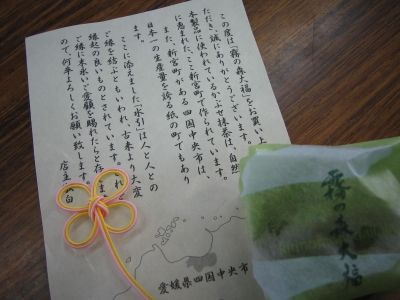 この度は「霧の森大福」をお買い上
ただき、誠にありがとうございます。
本製品に使われているかぶせ抹茶は、自然
に恵まれた、ここ新宮町で作られています。
また、新宮町がある四国中央市は、
日本一の生産量を誇る紙の町でもあり
ます。
ここに添えました「水引」は人と人との
ご縁を結ぶともいわれ、古来より大変
縁起の良いものとされています。
ご縁に末永いご愛顧を賜れたらと存
ので、何卒よろしくお願い致します。
店主
白
愛媛県四国中央市
霧の森大福